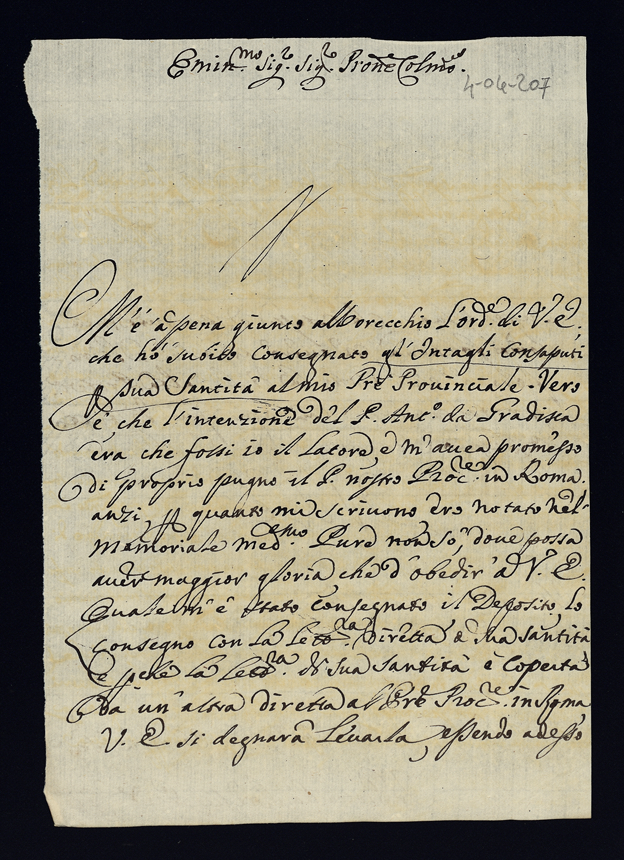 Emin.mo Sig.r Sig.r Prone Colmo.
4-04-207
M'è à pena giunto all'orecchio l'ord.e di V. E.
che hò subito consegnato gl'Intagli consaputi
sua Santità al mio Pre Provinciale. Vero
è, che l'intenzione del P. Ant.o da Gradisca
era che fossi io il Latore, e m'avea promesso
di proprio pugno il P. nostro Proc.re in Roma.
anzi, quanto mi scrivono ero notato nel
memoriale med.esmo Pure non sò, dove possa
aver maggior gloria che d'obedir à V. E.
Quale m'è stato consegnato il Deposito, lo
consegno con la lett.ra diretta à sua santità
e perche la lett.ra di sua santità è coperta
da un'altra diretta al Pre Proc.re in Roma
V. E. si degnarà levarla, essendo adesso